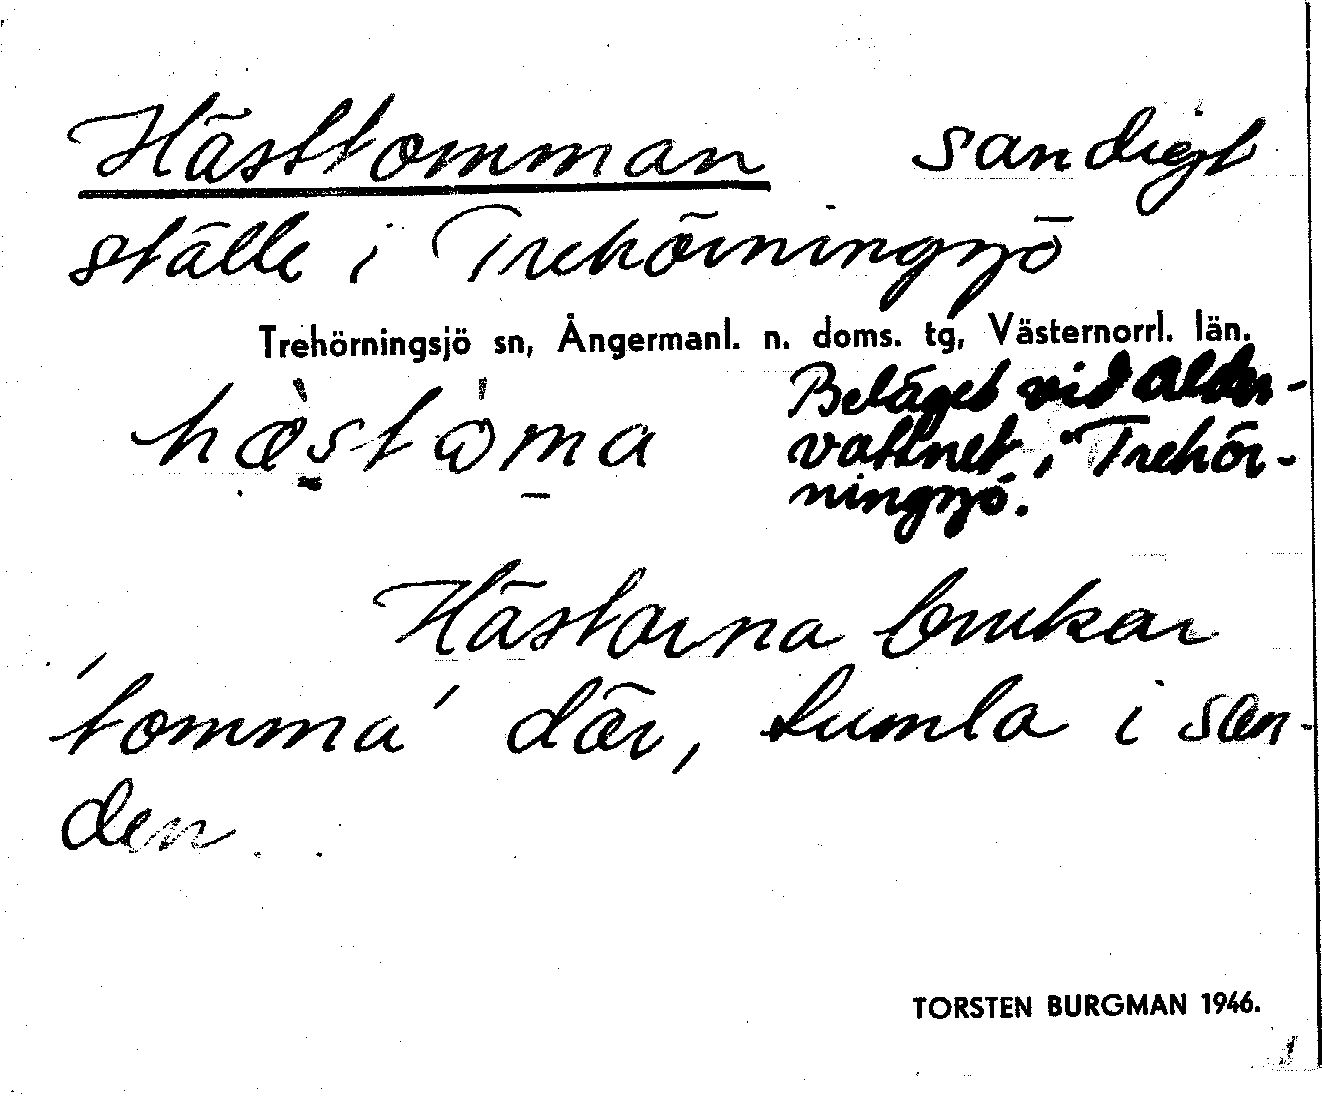 Hästtomman sandigt
ställe i Trehörningsjö
Trehörningsjö sn, Ångermanl. n. doms. tg, Västernorrl. län.
hæ̀stòma
Beläget vid Alder-
vattnet i Trehör-
ningsjö.
Hästarna brukar
'tomma' där, tumla i san-
den.
TORSTEN BURGMAN 1946.